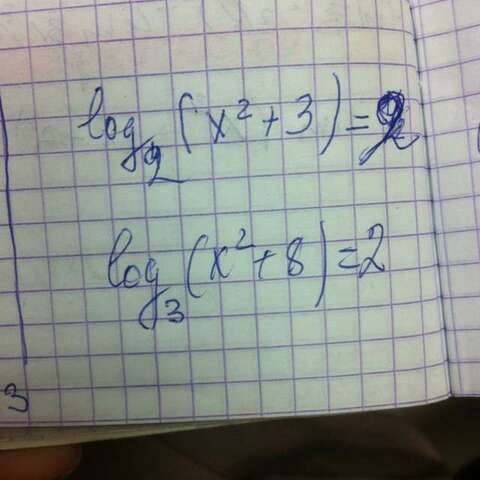 log₂(x²+3)=2
log₃(x²+8)=2
3